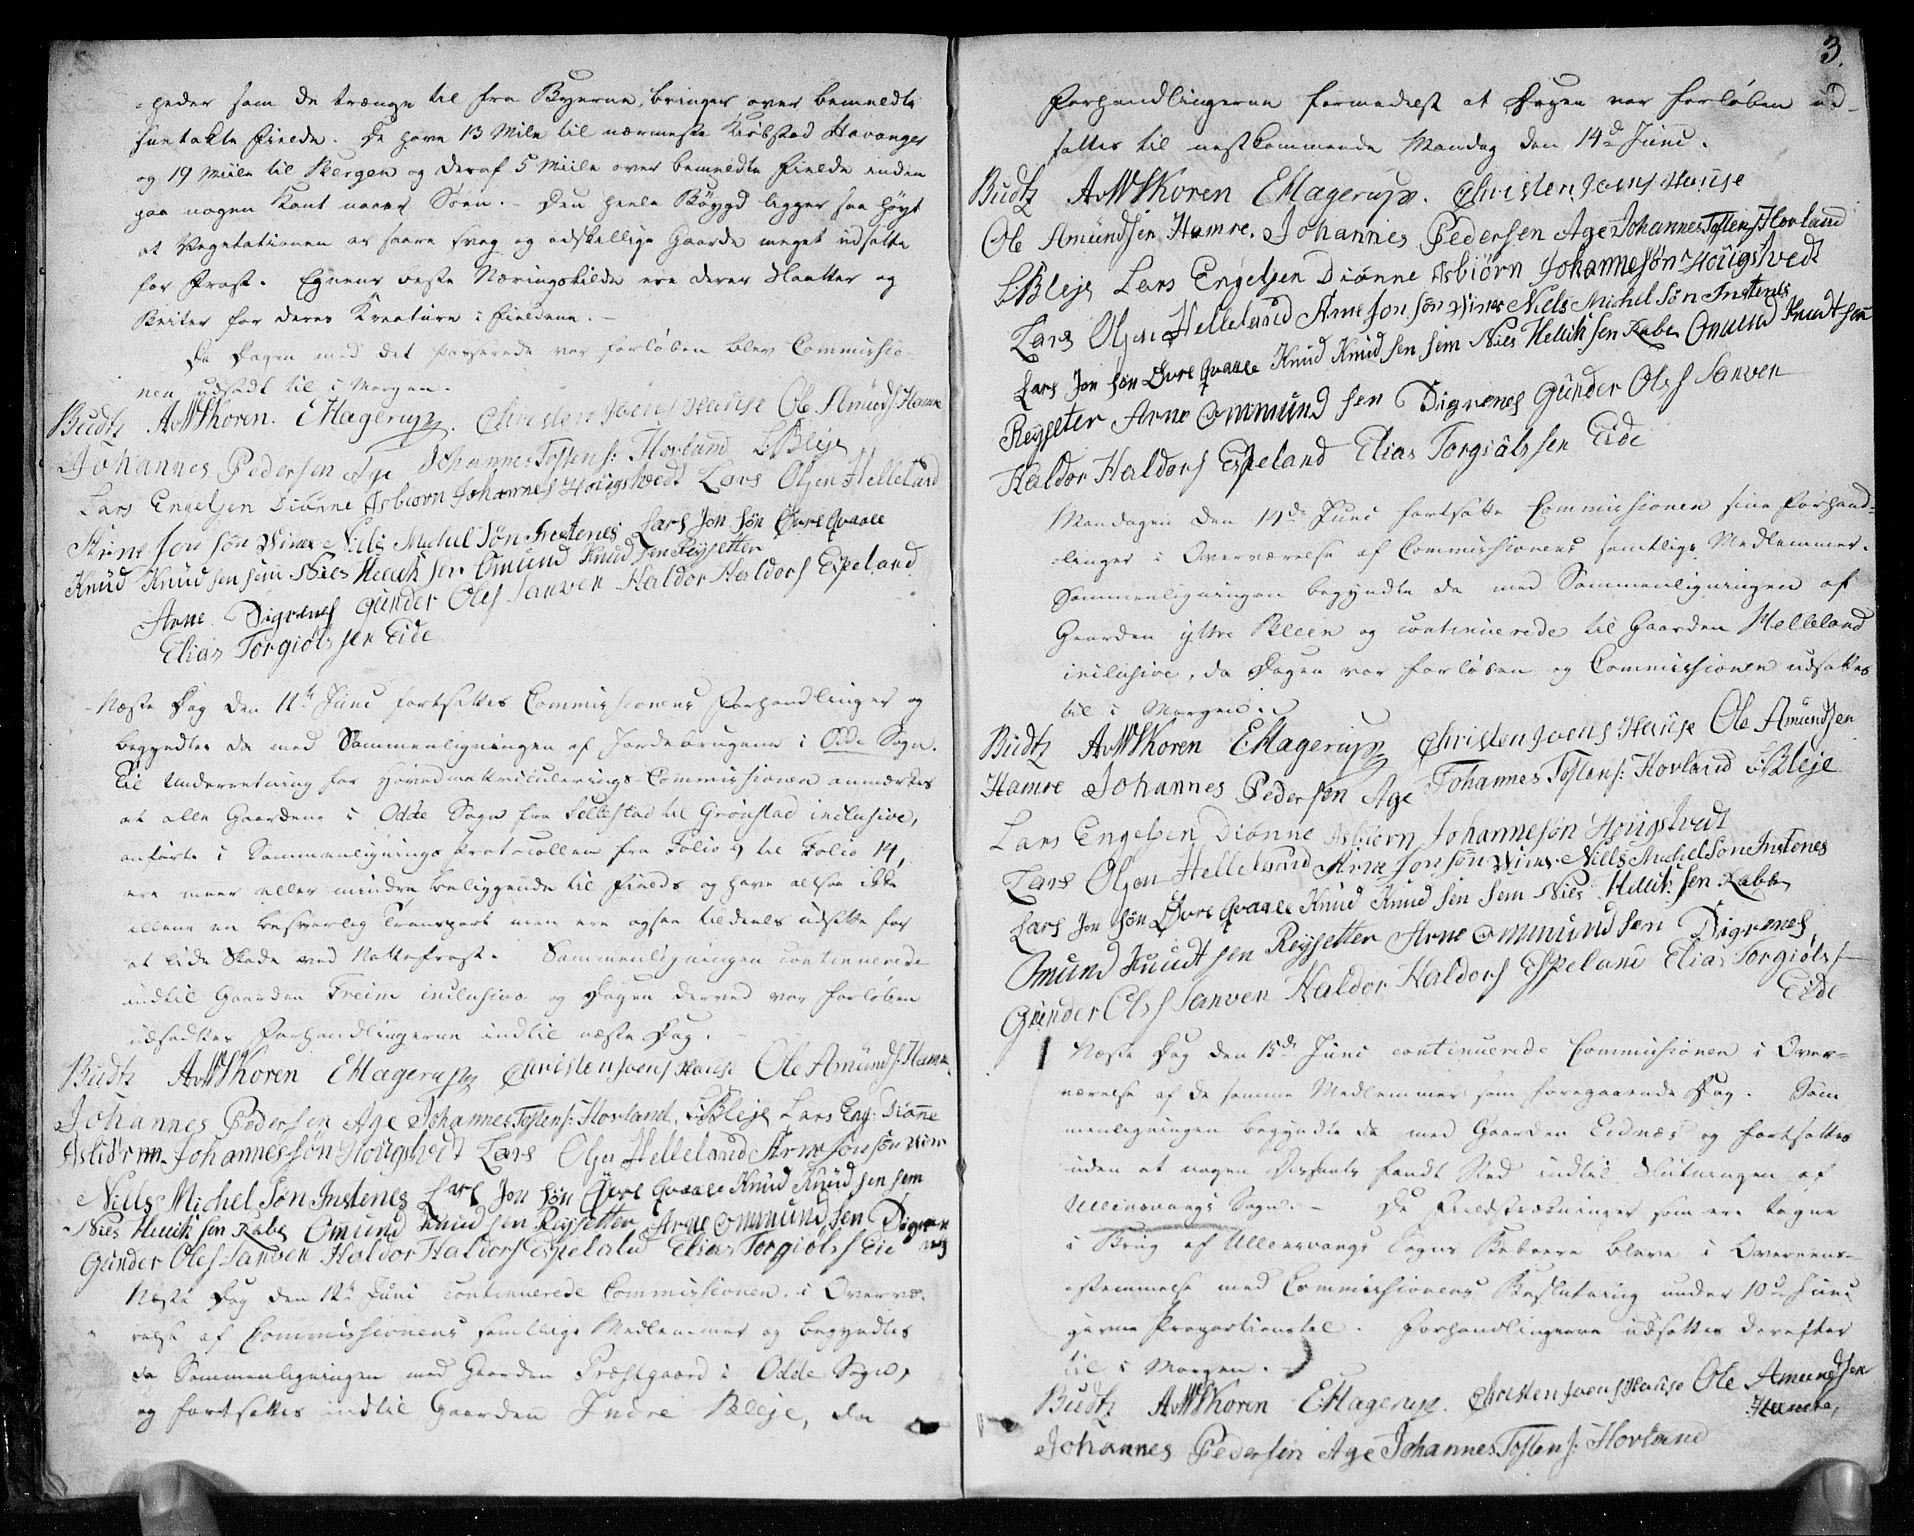 -heder som de trænge til fra Byerne, bringes over bemeldte
suntakte Fielde. De have 13 Mile til nærmeste Kiøbstad Stavanger
og 19 Miile til Bergen og deraf 5 Miile over bemeldte Fielde inden
paa nogen Kant naaes Søen. - Den heele Bøygd ligger saa høyt
at Vegetationen er saare svag og adskellige Gaarde meget udsatte
for Frost. Egnens beste Næringskilde ere deres Slaatter og
Beiter for deres Kreature i Fieldene. -
Da Dagen med det passerede var forløben blev Commissio-
nen udsadt til i Morgen.
Budtz AvWKoren. EHagerup. Christen Joens Hause Ole Amunds: Hamre
Johannes Pedersen Age Johannes Tostens: Hovland SBleje
Lars Engelsen Diønne Asbiørn Johannes Hougstvedt Lars Olsen Helleland
Arne Jon søn Vines Niels Michel Søn Instenes Lars Jon søn Øvre Qvaale
Knud Knudsen sem Niels Hellik sen Omund Knudsen Reysetter
Arne Digrenes Gunder Oles Sanven Haldor Haldors Espeland
Elias Torgiøls sen Eide
Næste Dag den 11te Juni fortsattes Commissionens Forhandlinger og
begyndtes da med Sammenligningen af Jordebrugene i Odde Sogn.
Til Underretning for Hovedmatriculerings-Commissionen anmærkes
at alle Gaardene i Odde Sogn fra Sellestad til Grønstad inclusive,
anførte i Sammenlignings Protocollen fra Folio 9 til Folio 14,
ere meer eller mindre beliggende til Fields og have altsaa ikke
allene en besværlig Transport men ere ogsaa tildeels udsatte for
at lide Skade ved Nattefrost. Sammenligningen continuerede
indtil Gaarden Freim inclusive og Dagen derved var forløben
udsadtes Forhandlingerne indtil næste Dag.
Budtz AvWKoren EHagerup Christen Joens Hause Ole Amunds: Hamre
Johannes Pedersen Age Johannes Tostens: Hovland. SBleje Lars Eng: Diønne
Asbiørn Johannessøn Hougstvedt Lars Olsen Helleland Arne Jonsøn Vines
Niels Michel Søn Instenes Lars Jon søn Øvre Qvaale Knud Knud sen sem
Niels Hellik sen Rabe Omund Knud sen Reysetter Arne Ommund sen Digre
nes
Gunder Oles Sanven Haldor Haldors Espeland Elias Torgiøls Eie
Næste Dag den 12te Juni continuerede Commissionen i Overvæ-
relse af Commissionens samtlige Medlemmer og begyndtes
da Sammenligningen med Gaarden Præstgaard i Odde Sogn,
og fortsattes indtil Gaarden Indre Bleje, da
3.
Forhandlingerne formedelst at Dagen var forløben ud-
sattes til nestkommende Mandag den 14de Juni.
Budtz AvWKoren EHagerup. Christen Joens Hause
Ole Amundsen Hamre. Johannes Pedersen Age Johannes Tostens Hovland
SBleje Lars Engelsen Diønne Asbiørn Johannesøn Hougstvedt
Lars Olsen Helleland Arne Jon søn Vines Niels Michel Søn Instenes
Lars Jon søn Øvre Qvaale Knud Knud sen sem Niels Hellik sen Rabe Omund Knudt sen
Reysetter Arne Ommund sen Digrenes Gunder Olss Sanven
Haldor Haldors Espeland Elias Torgiøls sen Eide
Mandagen den 14de Juni fortsatte Commissionen sine Forhand-
linger i Overværelse af Commissionens samtlige Medlemmer.
Sammenligningen begyndte da med Sammenligningen af
Gaarden yttre Bleen og continuerede til Gaarden Helleland
inclusive, da Dagen var forløben og Commissionen udsattes
til i Morgen.
Budtz AvWKoren EHagerup Christen Joens Hause Ole Amundsen
Hamre Johannes Pedersen Age Johannes Tostens: Hovland SBleje
Lars Engelsen Diønne Asbiørn Johannesøn Hougstvedt
Lars Olsen Helleland Arne Jon søn Vines Niels Michel Søn Instenes
Lars Jon søn Øvre Qvaale Knud Knud sen sem Niels Hellik sen Rabe
Omund Knudt sen Reysetter Arne Ommund sen Digrenes
Gunder Olss Sanven Haldor Haldors Espeland Elias Torgiøls
Eide
Næste Dag den 15de Juni continuerede Commissionen i Over-
værelse af de samme Medlemmer som foregaaende Dag. Sam
menligningen begyndte da med Gaarden Eidnæs og fortsattes
uden at nogen Dissents fandt Sted indtil Slutningen af
Ullensvangs Sogn. - De Fieldstrækninger som ere tagne
i Brug af Ullensvangs Sogns Beboere bleve i Overeens-
stemmelse med Commissionens Beslutning under 10de Juni
givne Proportionstal. Forhandlingerne udsattes derefter
til i Morgen. -
Budtz AvWKoren EHagerup. Christen Joens Hause Ole Amundsen
Hamre,
Johannes Pedersen Age Johannes Tostens: Hovland